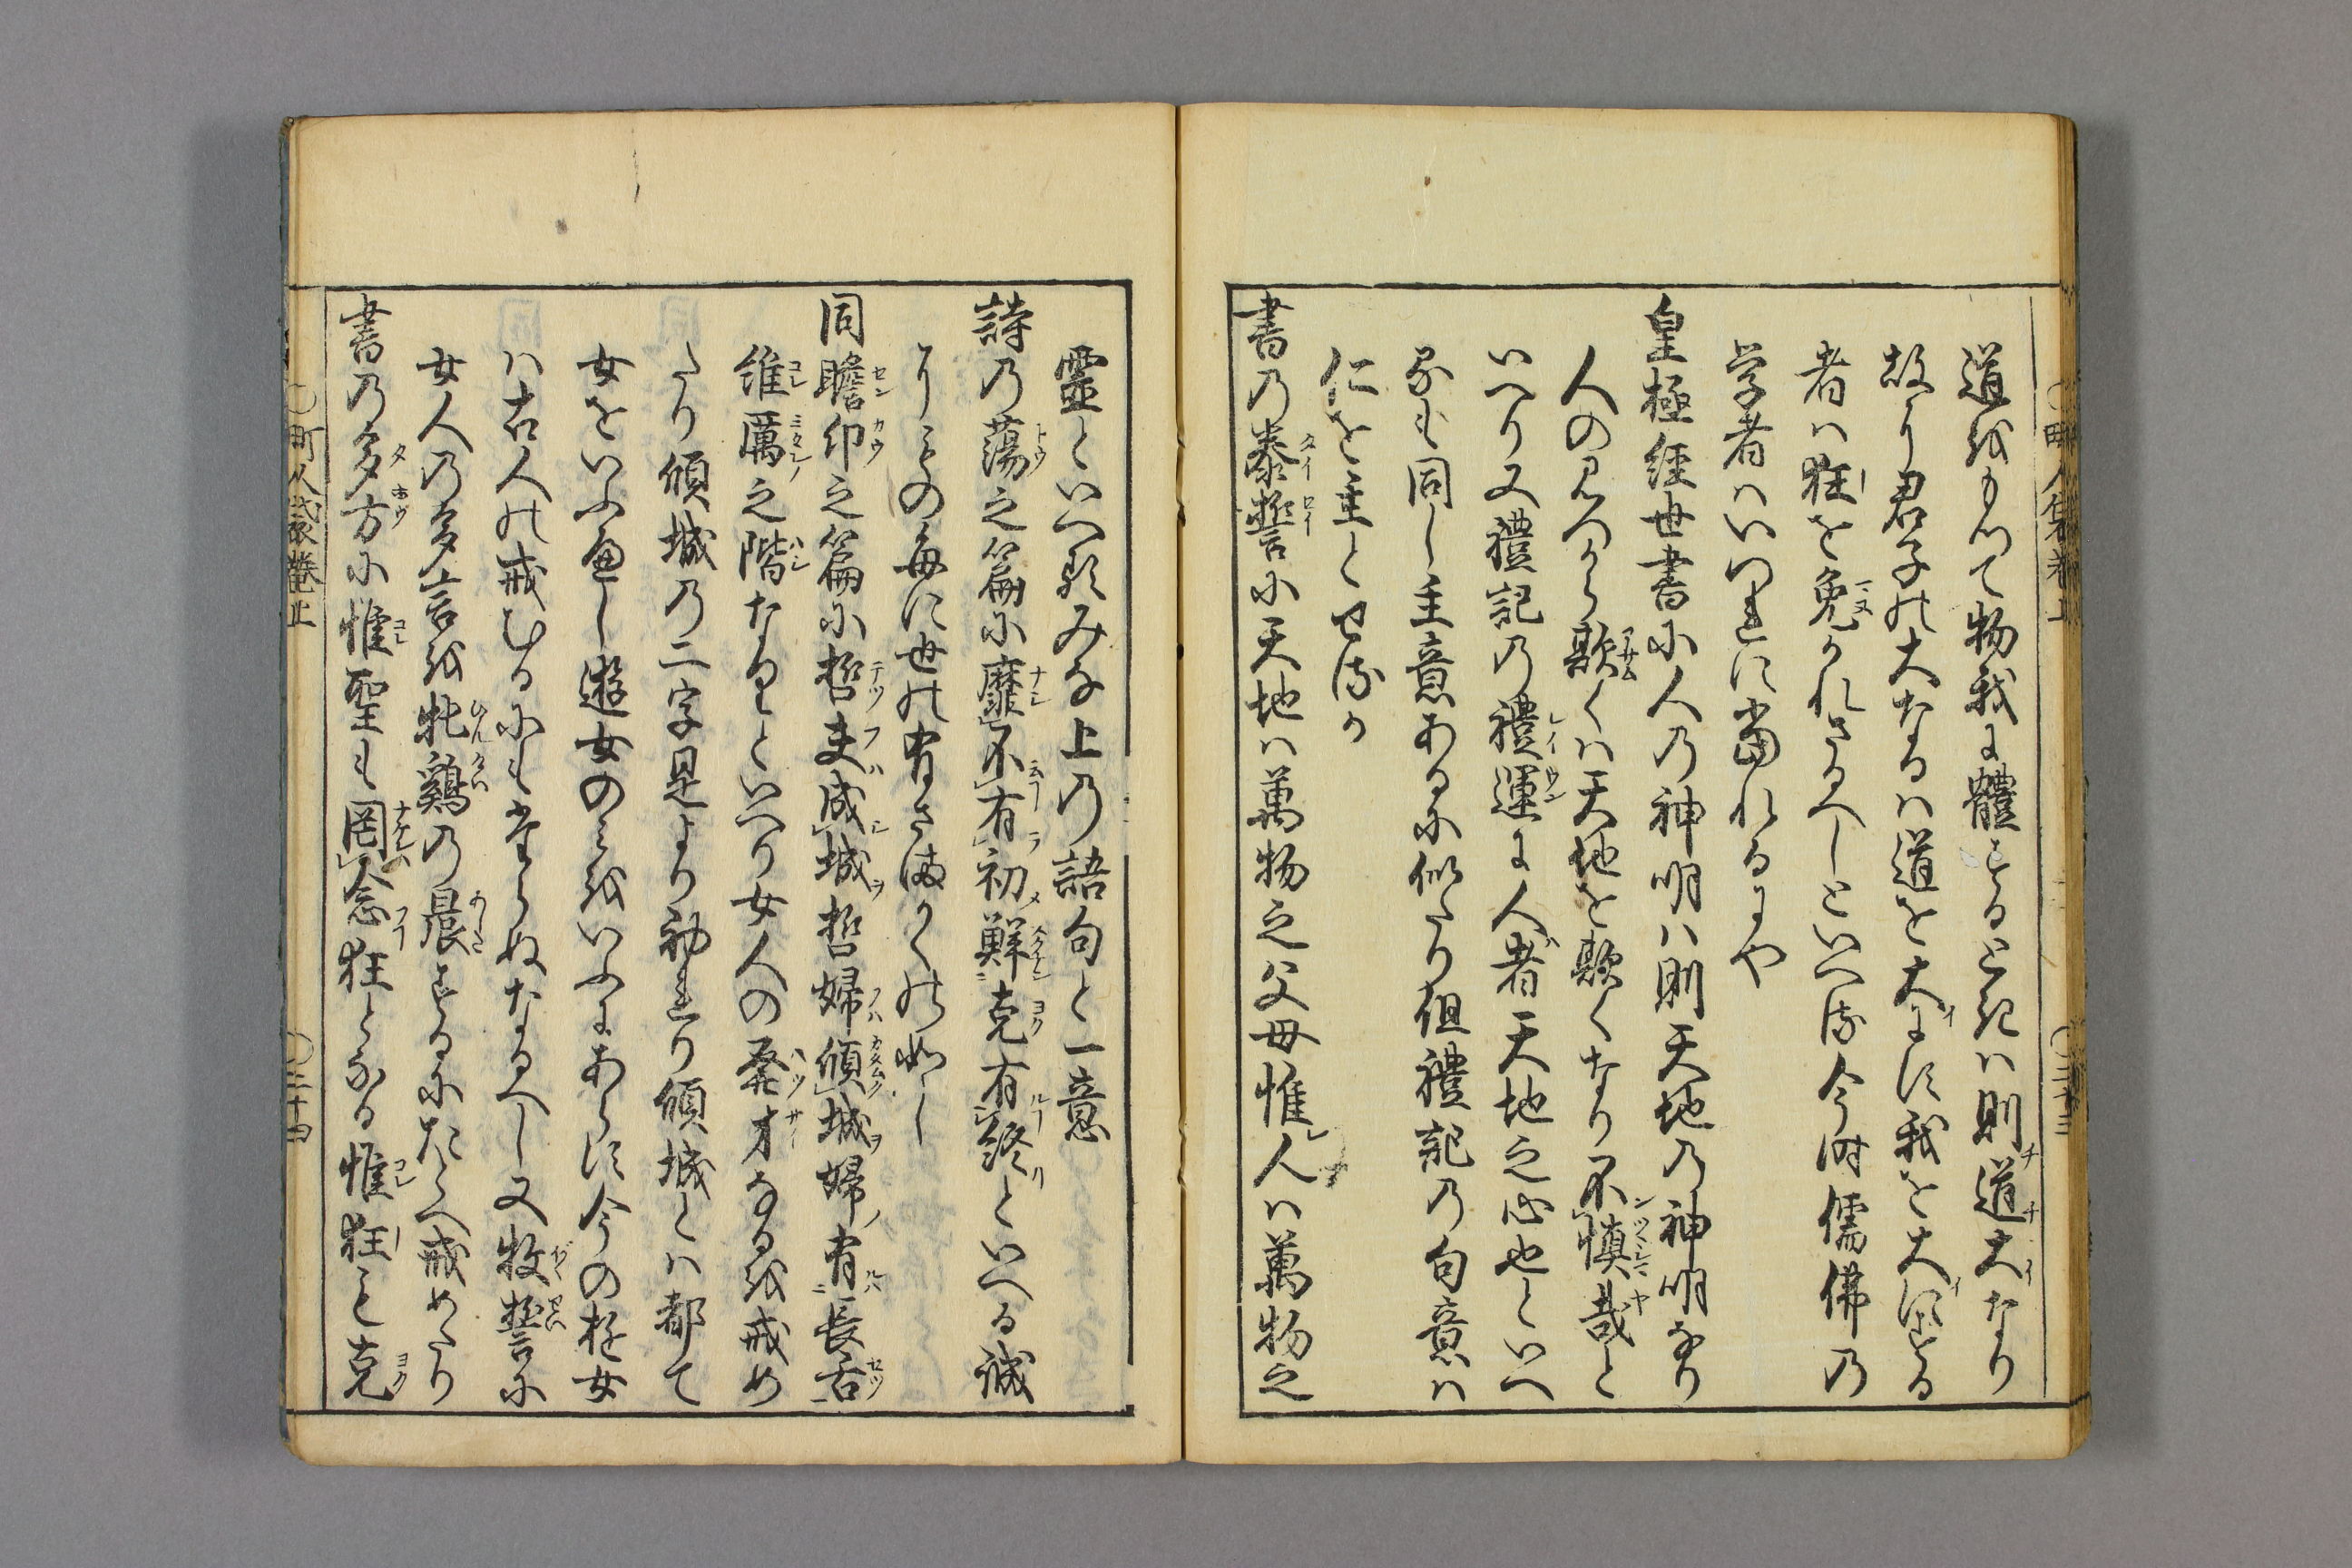 道をもつて物我に體するときは則道大なり
故に君子の大なるは道を大にす我を大にする
者は狂を免かれさるへしといへり今時儒佛の
学者はいつれに當れるにや
皇極経世書に人の神明ハ則天地の神明なり
人の見つから欺くは天地を欺くなり不慎哉と
いへり又禮記の禮運に人者天地之心也といへ
るも同し主意あるに似たり但禮記の句意ハ
仁を主とせるか
書の泰誓に天地ハ萬物之父母惟人ハ萬物之
霊といへるみな上の語句と一意
詩の蕩之篇に靡不有初鮮克有終といへる誠
にもの毎に世の有さまかくの如し
同瞻卬之篇に哲夫成城哲婦傾城婦有長舌
維厲之階なりといへり女人の発才なるを戒め
たり傾城の二字是より初れり傾城とハ都て
女をいふ也し遊女のみをいふにあらす今の遊女
ハ古人の戒むるにもたらぬなるへし又牧誓に
女人の多言を牝鷄の晨するにたとへ戒めたり
書の多方に惟聖も罔念狂となる惟狂も克
町人袋巻上
二十三
町人袋巻上
二十四